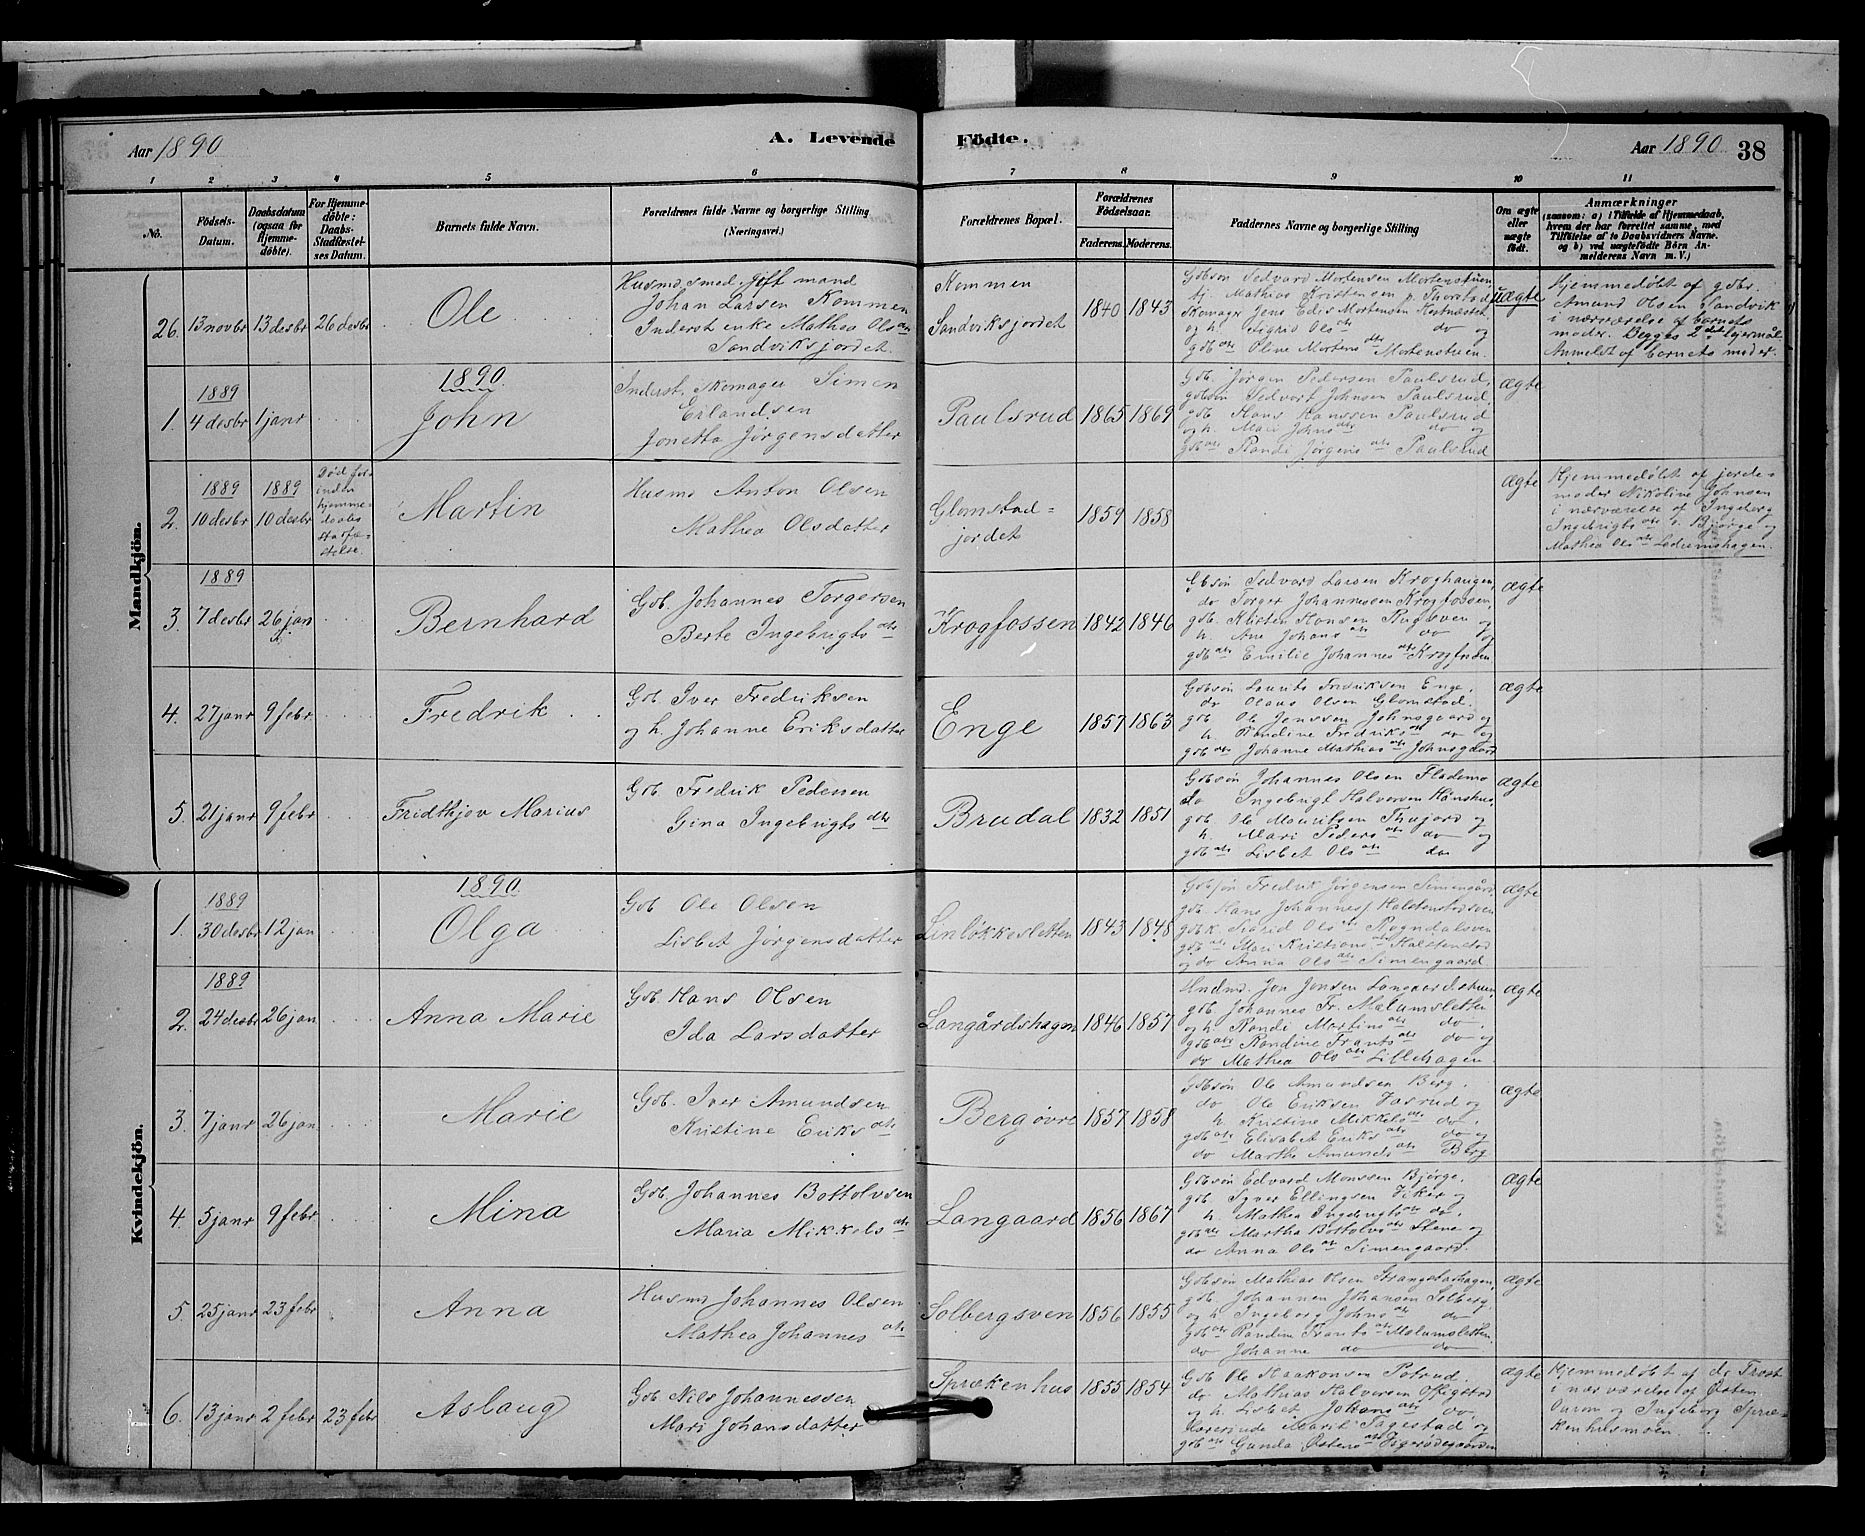 Aar 1890
A. Levende
Födte.
Aar 1890
38
1 2 3 4 5 6 7 8 9 10 11
No.
Födsels-
Datum.
Daabsdatum
(ogsaa for
Hjemme-
döbte).
For Hjemme-
döbte:
Daabs-
Stadfæstel-
ses Datum.
Barnets fulde Navn.
Forældrenes fulde Navne og borgerlige Stilling
(Næringsvei.)
Forældrenes Bopæl.
Forældrenes
Födselsaar.
Faderens. Moderens.
Faddernes Navne og borgerlige Stilling
Om ægte
eller
uægte
födt.
Anmærkninger
(saasom: a) i Tilfælde af Hjemmedaab,
hvem der har forrettet samme, med
Tilföielse af to Daabsvidners Navne.
og b) ved uægtefödte Börn An-
melderens Navn m. V.)
Mandkjön.
26. 13 novbr 13 desbr 26 desbr
Ole
Husmd smed, gift mand
Johan Larsen Kommen
Inderst enke Mathea Ols dtr
Sandviksjordet.
Kommen
Sandviksjordet
1840 1843
Gbsøn Sedvard Mortensen Mortenstuen
tj. Mathias Kristensen p. Thorstad
Skomager Jens Edis Mortensen
og h. Sigrid Ols dtr do og
gdb dtr Oline Mortens dtr Mortenstuen.
uægte
Hjemmedøbt af gdbr.
Amund Olsen Sandvik
i nærværelse af barnets
moder. Begges 2det leiermål
Anmeldt af barnets moder.
1889
1. 4 desbr 1 janr
1890
John
Inderst, Skomager Simen
Erlandsen
Jonetta Jørgensdatter
Paulsrud 1865 1869
Gdb. Jørgen Pedersen Paulsrud,
gdbsøn Sedvart Johnsen Paulsrud,
gdb Hans Hanssen Paulsrud
og h. Mari Johns dtr do og
gdb dtr Randi Jørgens dtr Paulsrud
ægte
1889 1889
2. 10 desbr 10 desbr
Død for-
inden
hjemme-
daabs
stadfæ-
stelse.
Martin
Husmd Anton Olsen
Mathea Olsdatter
Glomstad=
jordet
1859 1858
ægte
Hjemmedøbt af jorde-
moder Nikoline Johnsen
i nærværelse af Ingeborg
Ingebrigts dtr o. Bjørge og
Mathea Ols dtr Ledumshagen.
1889
3. 7 desbr 26 jan
Bernhard
Gdb. Johannes Torgersen
Berte Ingebrigts dtr
Krogfossen 1842 1846
Gbsøn Sedvard Larsen Kroghaugen,
do Torger Johannessen Krogfossen,
gdb. Kristen Hansen Rugsven og
h. Ane Johans dtr do og
gdb dtr Emilie Johannes dtr Krogfossen
ægte
4. 27 janr 9 febr.
Fredrik
Gdb. Iver Fredriksen
og h. Johanne Eriksdatter
Enge 1857 1863
Gdbsøn Laurits Fredriksen Enge,
do Olaus Olsen Glomstad.
gdb Ole Jenssen Johnsgaard og
h. Randine Fredriks dtr do og
gdb dtr Johanne Mathias dtr Johnsgaard
ægte
5. 21 janr 9 febr
Fridthjov Marius
Gdb. Fredrik Pedersen
Gina Ingebrigts dtr
Brudal 1832 1851
Gdbsøn Johannes Olsen Flademo
do Ingebrigt Halvorsen Hønshus,
gdb Ole Mouritsen Thujord og
h. Mari Peders dtr do og
gdb dtr Lisbet Ols dtr do
ægte
Kvindekjön.
1889
1. 30 desbr 12 jan
1890
Olga
Gdb Ole Olsen
Lisbet Jørgensdatter
Linløkkesletten 1843 1848
Gdbsøn Fredrik Jørgensen Simengård
gdb. Hans Johannes Halstenstadsven
gdbk Sigrid Ols dtr Rogndalsven
gdb dtr Mari Kristians dtr Halstenstad
og do Anna Ols dtr Simengaard
ægte
1889
2. 24 desbr 26 jan
Anna Marie
Gdb. Hans Olsen
Ida Larsdatter
Langårdshagen 1846 1857
Husmd. Jon Jonsen Langaardstuen,
gdb. Johannes Fr. Mælumsletten
og h. Randi Martins dtr do,
gdb dtr Randine Frants dtr do og
do Mathea Ols dtr Lillehagen
ægte
3. 7 janr 26 jan
Marie
Gdb. Iver Amundsen
Kristine Eriks dtr
Berg øvre 1857 1858
Gdbsøn Ole Amundsen Berg,
do Ole Eriksen Jasrud og
h. Kristine Mikkels dtr do,
gdb dtr Elisabet Eriks dtr do og
do Marthe Amunds dtr Berg
ægte
4. 5 janr 9 febr
Mina
Gdb. Johannes Bottolvsen
Maria Mikkels dtr
Langaard 1856 1867
Gdbsøn Edvard Monssen Bjørge,
gdb. Syver Ellingsen Fiker og
h. Mathea Ingebrigts dtr do,
gdb dtr Martha Bottolvs dtr Stene og
do Anna Ols dtr Simengaard.
ægte
5. 25 janr 23 febr
Anna
Husmd Johannes Olsen
Mathea Johannes dtr
Solbergsven 1856 1855
Gdbsøn Mathias Olsen Strangstadhagen,
gdb. Johannes Johansen Solberg,
og h. Ingeborg Johns dtr do
gdb dtr Randine Frants dtr Mælumsletten
do Johanne do do
ægte
6. 13 janr 2 febr 23 febr
Aslaug
Gdb. Nils Johannessen
Mari Johansdatter
Sprækenhus 1855 1854
Gdb. Ole Haakonsen Potrud,
do Mathias Halvorsen Oftigstad
og h. Lisbet Johans dtr do
Lærerinde Marit Fagestad og
gdb dtr Gunda Østens dtr
ægte
Hjemmedøbt af dr Trost
i nærværelse af Østen
og Ingeborg Spræ-
kenhusmoen.